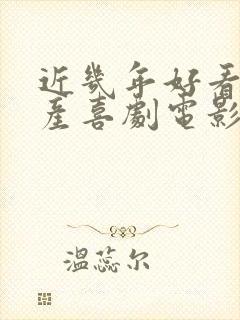 近幾年好看
產喜劇電影
溫蕊尔